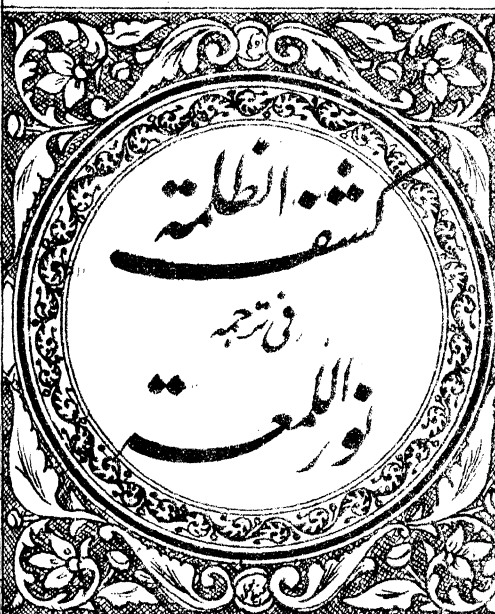 كشف الظلمة
فی ترجمه
نور اللمعة